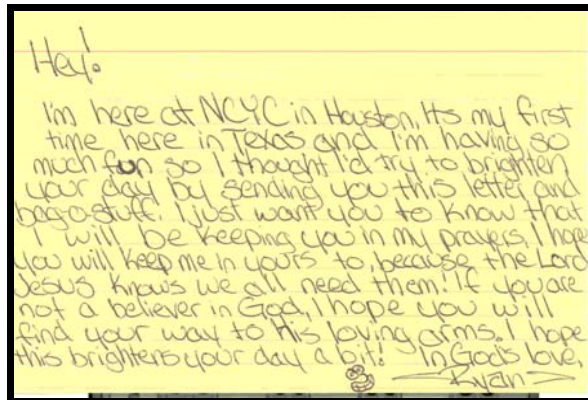 Hey!
I'm here at NCYC in Houston. Its my first
time here in Texas and I'm having so
much fun so I thought I'd try to brighten
your day by sending you this letter and
bag-o-stuff. I just want you to know that
I will be keeping you in my prayers. I hope
you will keep me in yours to, because the Lord
Jesus knows we all need them! If you are
not a believer in God, I hope you will
find your way to His loving arms. I hope
this brightens your day a bit! In God's love,
Ryan